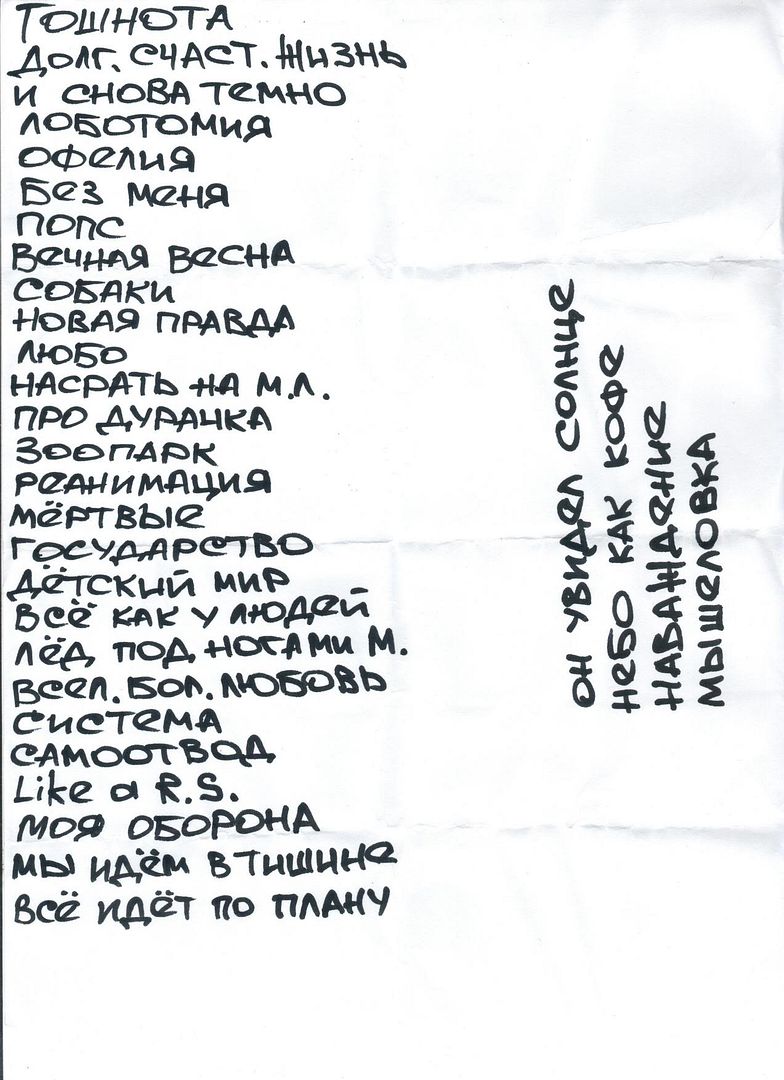 ТОШНОТА
ДОЛГ. СЧАСТ. ЖИЗНЬ
И СНОВА ТЕМНО
ЛОБОТОМИЯ
ОФЕЛИЯ
БЕЗ МЕНЯ
ПОПС
ВЕЧНАЯ ВЕСНА
СОБАКИ
НОВАЯ ПРАВДА
ЛЮБО
НАСРАТЬ НА М.Л.
ПРО ДУРАЧКА
ЗООПАРК
РЕАНИМАЦИЯ
МЁРТВЫЕ
ГОСУДАРСТВО
ДЕТСКИЙ МИР
ВСЁ КАК У ЛЮДЕЙ
ЛЁД ПОД НОГАМИ М.
ВСЕЛ. БОЛ. ЛЮБОВЬ
СИСТЕМА
САМООТВОД
Like a R.S.
МОЯ ОБОРОНА
МЫ ИДЁМ В ТИШИНЕ
ВСЁ ИДЁТ ПО ПЛАНУ
ОН УВИДЕЛ СОЛНЦЕ
НЕБО КАК КОФЕ
НАВАЖДЕНИЕ
МЫШЕЛОВКА